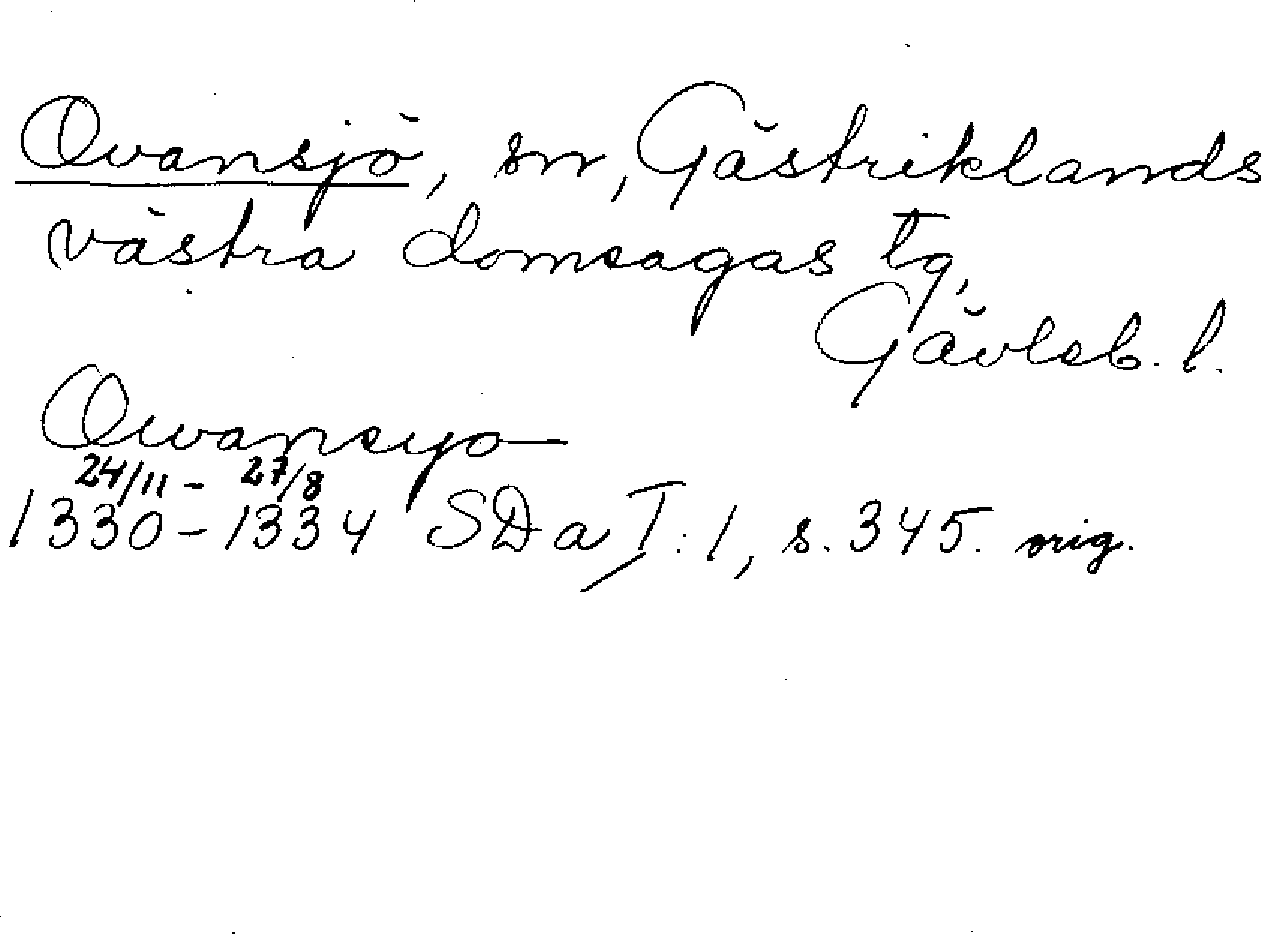 Ovansjö, sn, Gästriklands
västra domsagas tg,
Gävleb. l.
Owansyo
24/11 - 27/8
1330-1334 SDa I:1, s. 345. orig.